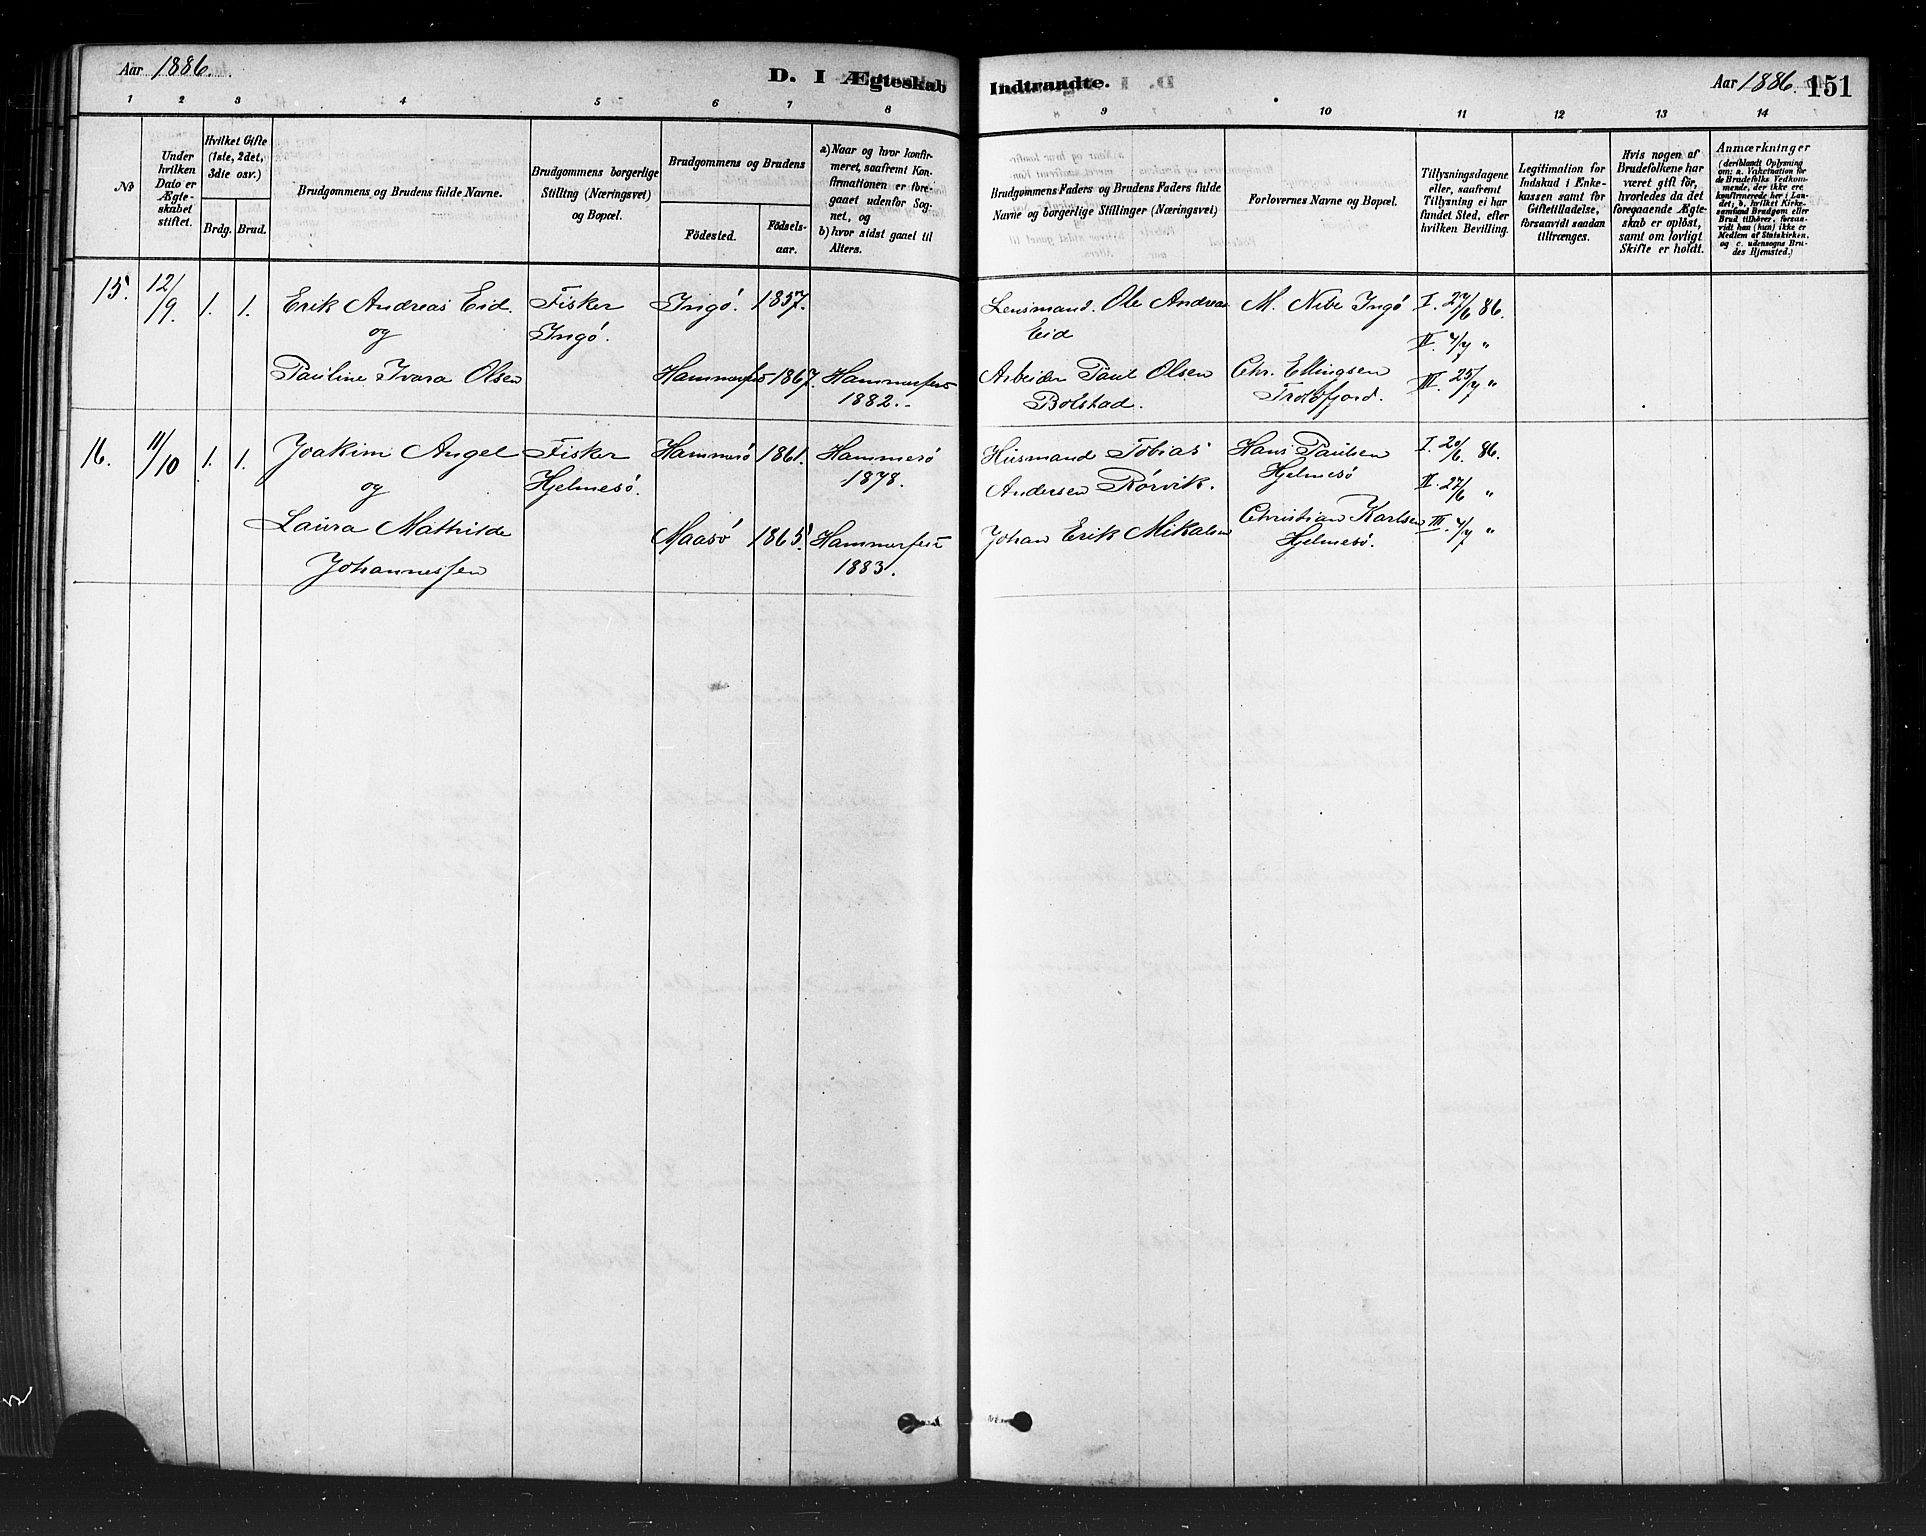 Aar 1886.
D. I Ægteskab
Indtraadte.
Aar 1886.
151
1 2 3 4 5 6 7 8
9 10 11 12 13 14
No
Under hvilken Dato er Ægteskabet stiftet.
Hvilket Gifte (1ste, 2det, 3die osv.)
Brdg. Brud.
Brudgommens og Brudens fulde Navne.
Brudgommens borgerlige Stilling (Næringsvei) og Bopæl.
Brudgommens og Brudens
Födested.
Födselsaar.
a) Naar og hvor konfirmeret, saafremt Konfirmationen er foregaaet udenfor Sognet, og
b) hvor sidst gaaet til Alters.
Brudgommens Faders og Brudens Faders fulde Navne og borgerlige Stillinger (Næringsvei)
Forlovernes Navne og Bopæl.
Tillysningsdagene eller, saafremt Tillysning ei har fundet Sted, efter hvilken Bevilling.
Legitimation for Indskud i Enkekassen samt for Giftetilladelse, forsaavidt saadan tiltrænges.
Hvis nogen af Brudefolkene har været gift för, hvorledes da det foregaaende Ægteskab er oplöst, samt om lovligt Skifte er holdt.
Anmærkninger
(deriblandt Oplysning om: a. Vakcination for de Brudefolks Vedkommende, der ikke ere konfirmerede her i Landet; b. hvilket Kirkesamfund Brudgom eller Brud tilhörer, forsaavidt han (hun) ikke er Medlem af Statskirken, og c. udensogns Brudes Hjemsted.)
15. 12/9. 1. 1. Erik Andreas Eid. Fisker Ingö. 1857. Lensmand. Ole Andreas M. Nibe Ingö I. 27/6 86.
og Ingö. Eid II. 4/7 "
Pauline Ivara Olsen Hammerfest 1867. Hammerfest Arbeider Paul Olsen Chr. Ellingsen III. 25/7 "
1882. Bolstad. Troldfjord.
16. 11/10 1. 1. Joakim Angel Fisker Hammerö 1861. Hammerö Husmand Tobias Hans Paulsen I. 20/6. 86.
og Hjelmesö. 1878. Andersen Rörvik. Hjelmesö II. 27/6 "
Laura Mathilde Maasö 1865. Hammerfest Johan Erik Mikalsen Christian Karlsen III. 4/7 "
Johannessen 1883. Hjelmesö.